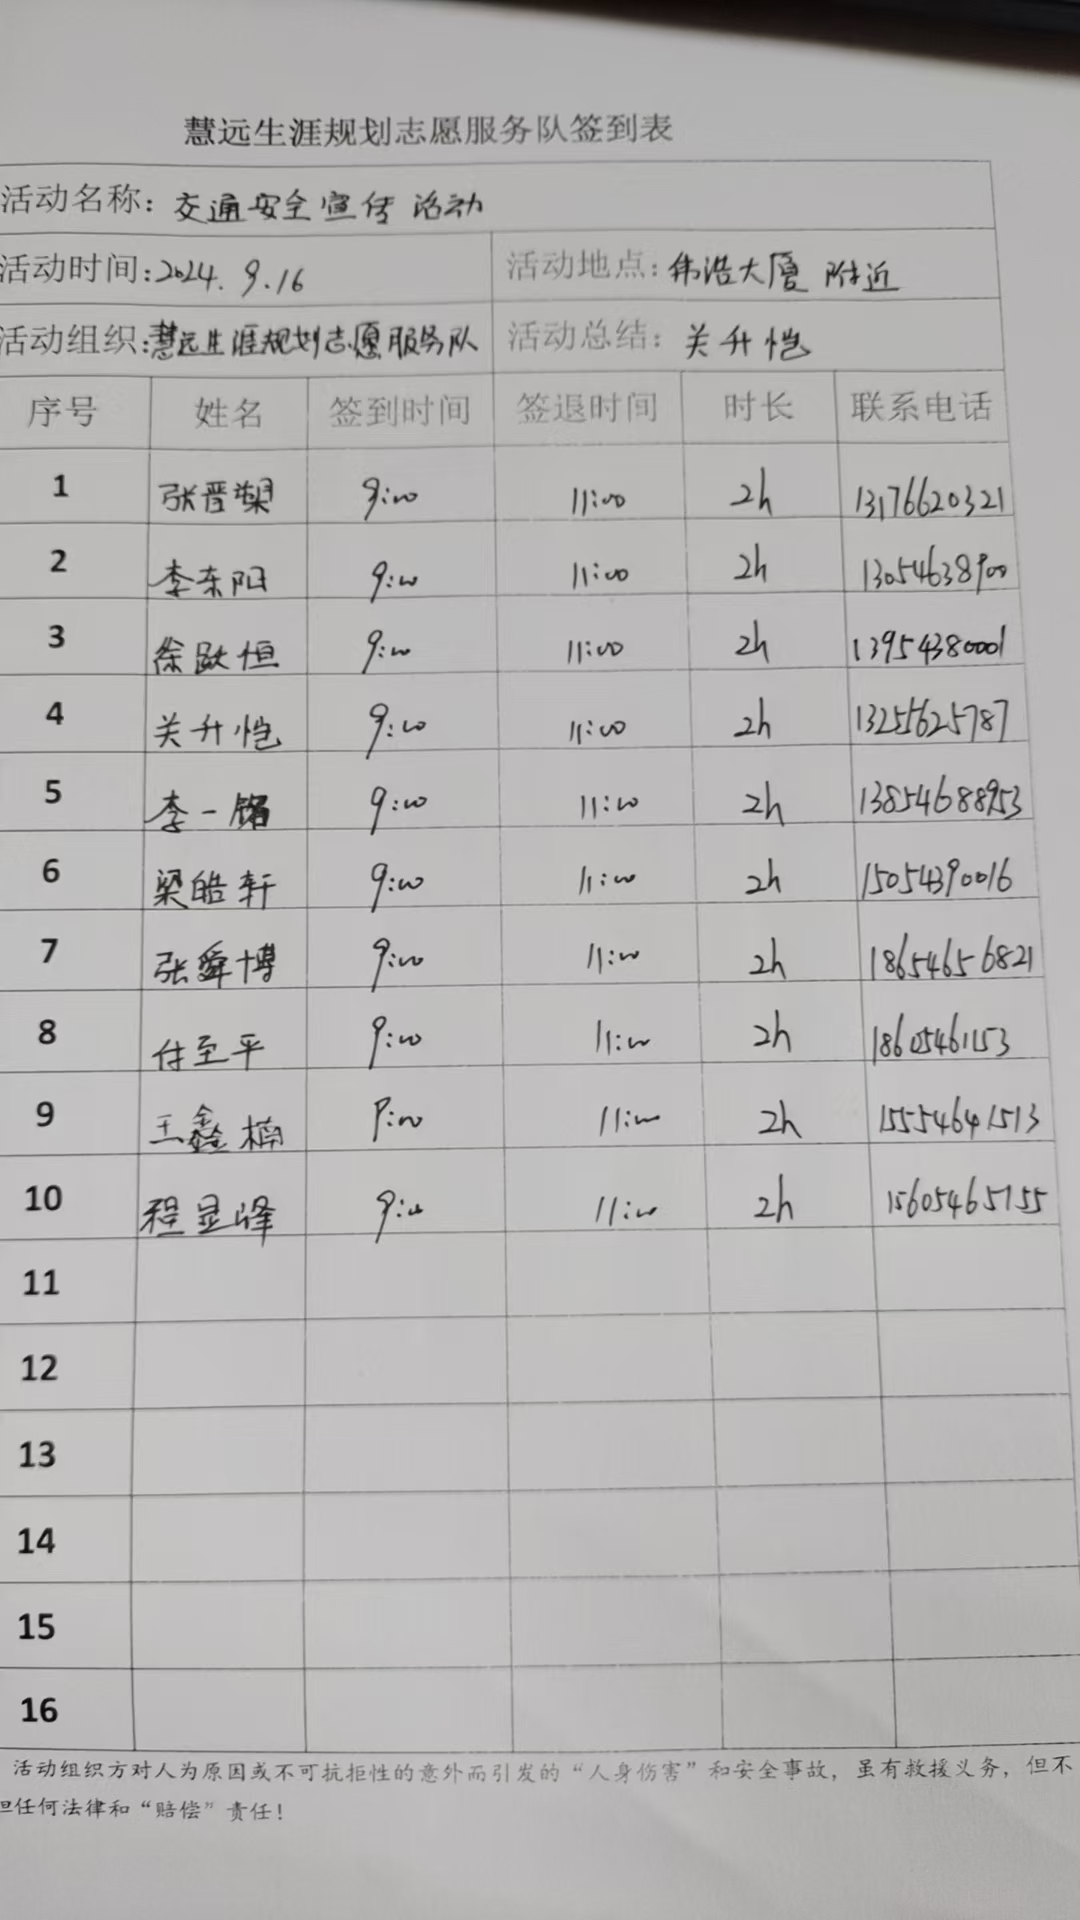 慧远生涯规划志愿服务队签到表
活动名称：交通安全宣传活动
活动时间：2024.9.16 活动地点：伟浩大厦 附近
活动组织：慧远生涯规划志愿服务队 活动总结：关升恺
序号 姓名 签到时间 签退时间 时长 联系电话
1 张晋 9:00 11:00 2h 13176620321
2 李东阳 9:00 11:00 2h 13054638900
3 徐跃恒 9:00 11:00 2h 13954380001
4 关升恺 9:00 11:00 2h 13255625787
5 李一铭 9:00 11:00 2h 13854688953
6 梁皓轩 9:00 11:00 2h 15054390016
7 张舜博 9:00 11:00 2h 18654656821
8 付至平 9:00 11:00 2h 18605461153
9 王鑫楠 9:00 11:00 2h 15554641513
10 程显峰 9:00 11:00 2h 15605465155
11
12
13
14
15
16
活动组织方对人为原因或不可抗拒性的意外而引发的“人身伤害”和安全事故，虽有救援义务，但不
担任何法律和“赔偿”责任！